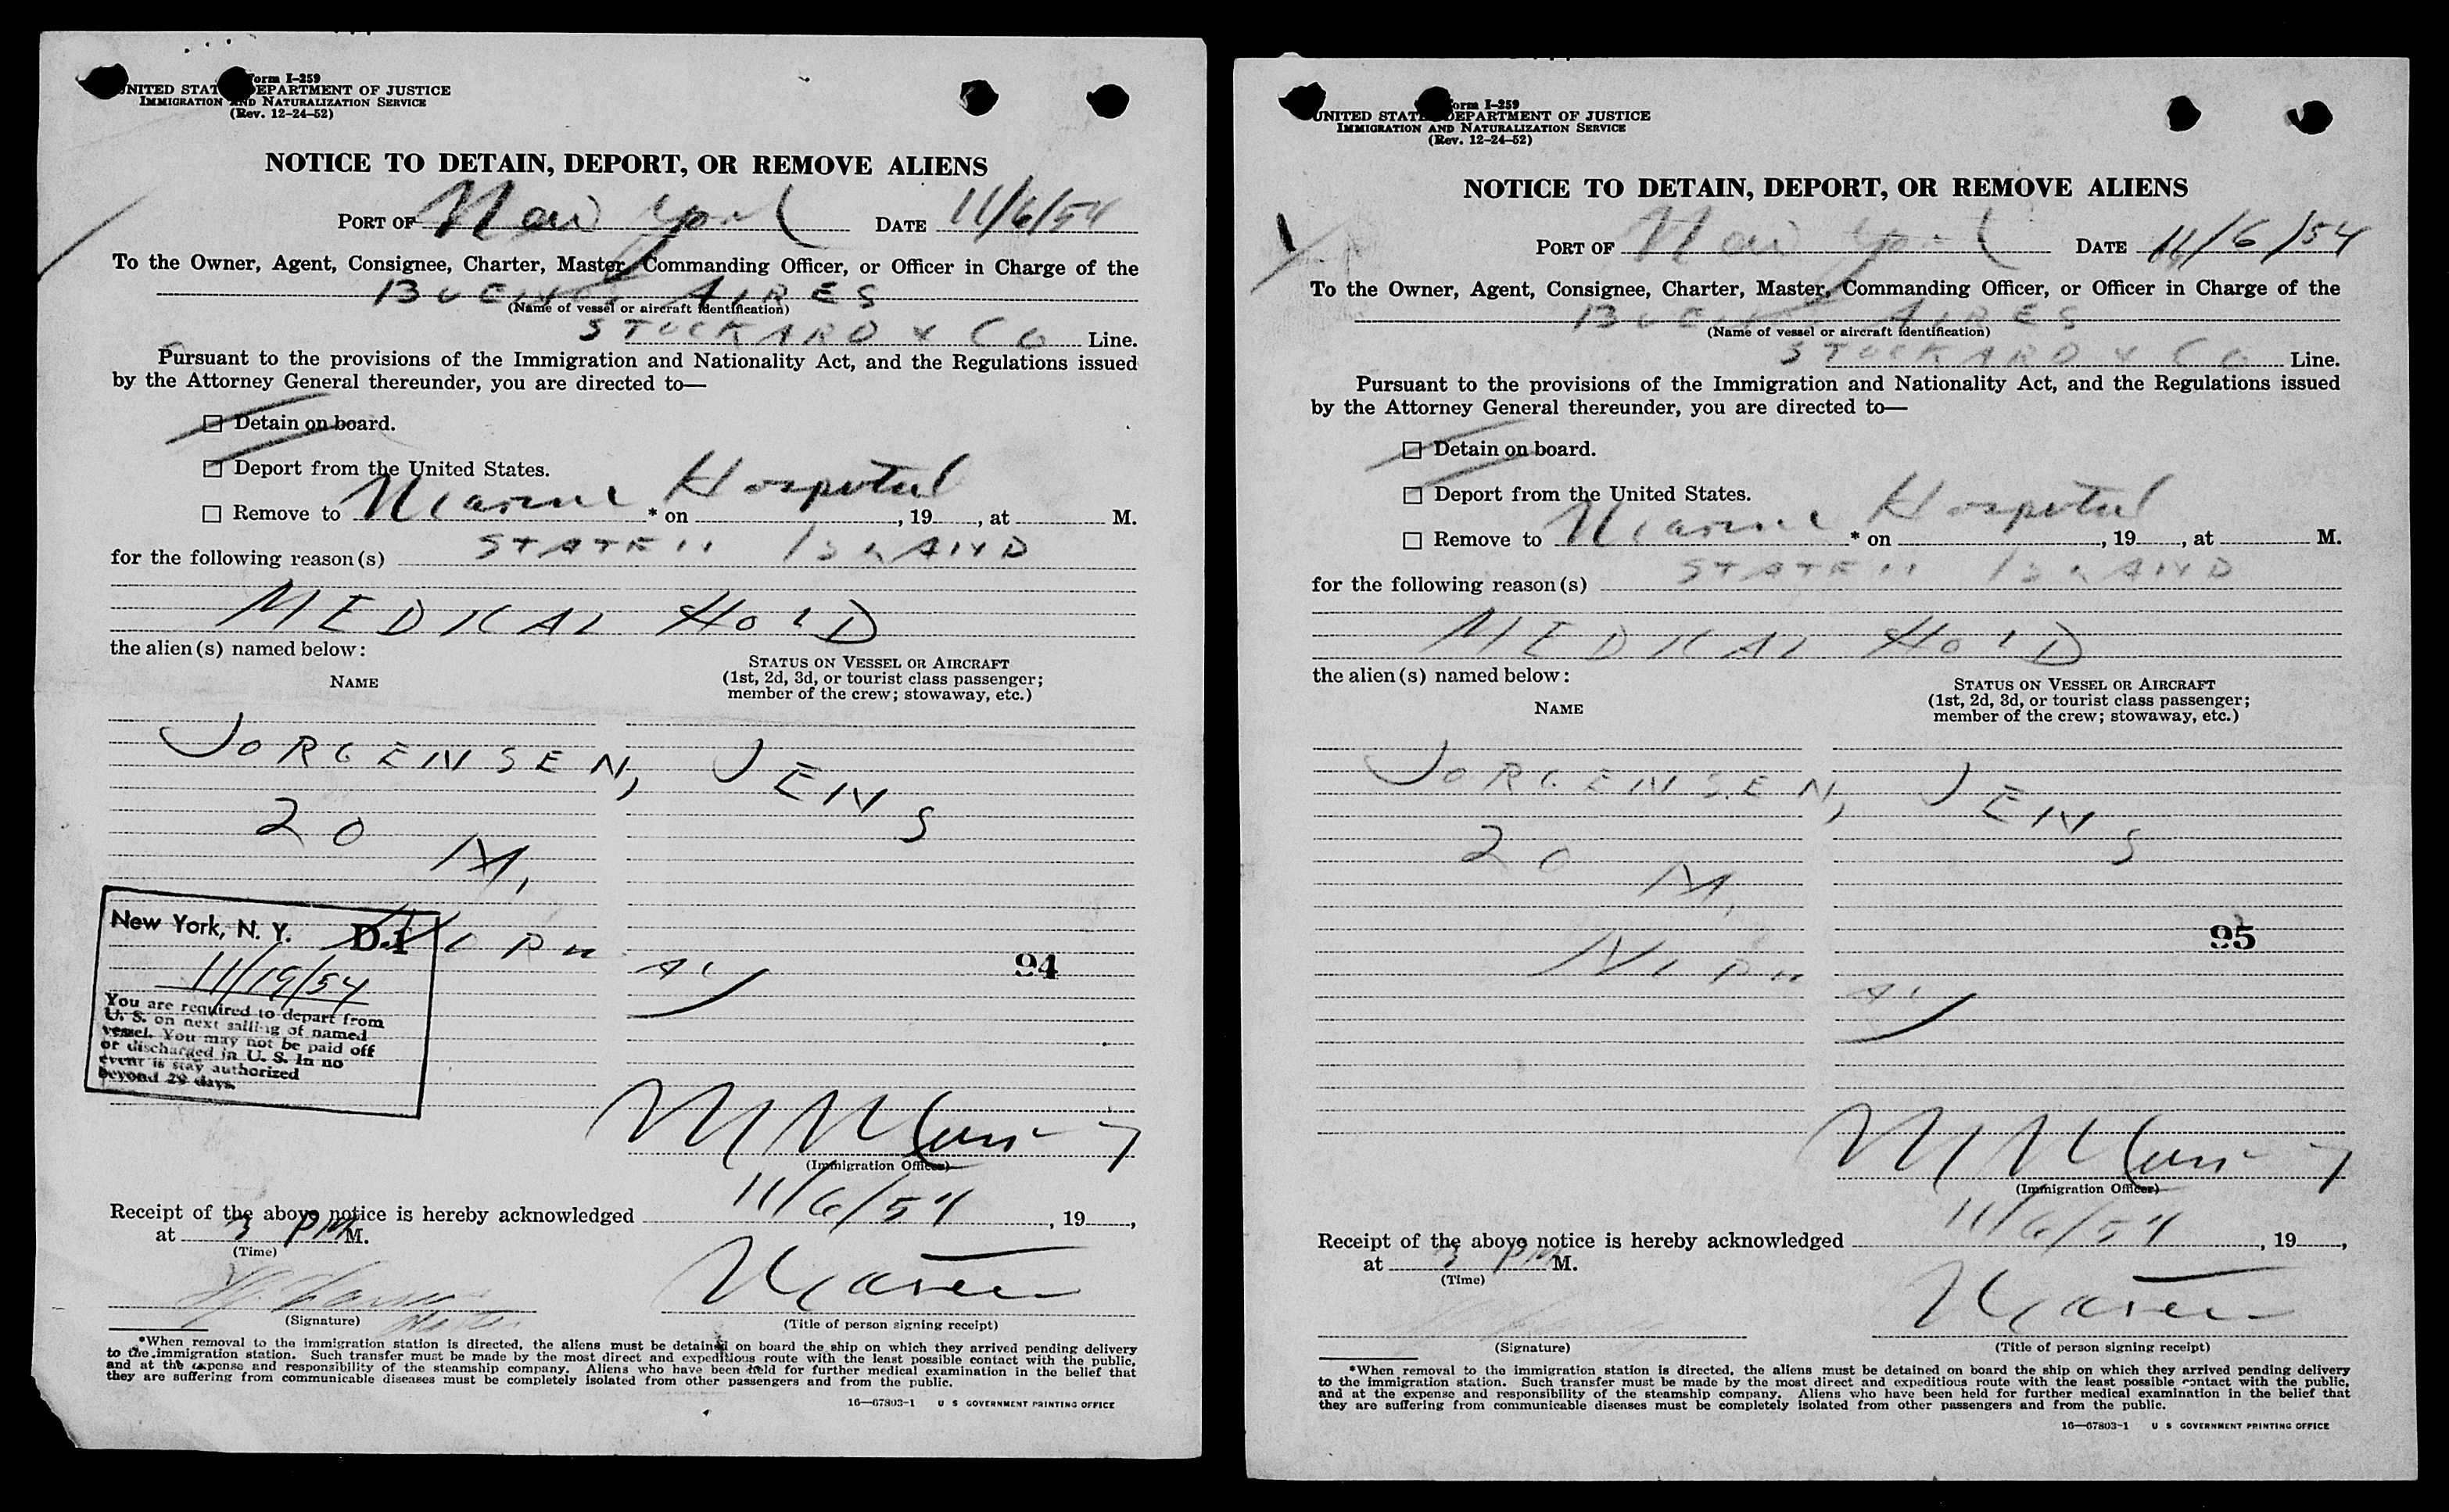 Form I-259
UNITED STATES DEPARTMENT OF JUSTICE
IMMIGRATION AND NATURALIZATION SERVICE
(Rev. 12-24-52)
NOTICE TO DETAIN, DEPORT, OR REMOVE ALIENS
PORT OF New York DATE 11/6/54
To the Owner, Agent, Consignee, Charter, Master, Commanding Officer, or Officer in Charge of the
BUENOS AIRES
(Name of vessel or aircraft identification)
STOCKARD & CO Line.
Pursuant to the provisions of the Immigration and Nationality Act, and the Regulations issued
by the Attorney General thereunder, you are directed to—
☐ Detain on board.
☐ Deport from the United States.
☐ Remove to Marine Hospital * on , 19 , at M.
STATEN ISLAND
for the following reason(s)
MEDICAL HOLD
the alien(s) named below:
NAME
STATUS ON VESSEL OR AIRCRAFT
(1st, 2d, 3d, or tourist class passenger;
member of the crew; stowaway, etc.)
JORGENSEN, JENS
20 M.
NORWAY
94
New York, N. Y. D-1
11/19/54
You are required to depart from
U. S. on next sailing of named
vessel. You may not be paid off
or discharged in U. S. In no
event is stay authorized
beyond 29 days.
(Immigration Officer)
Receipt of the above notice is hereby acknowledged 11/6/54, 19 ,
at 3 PM M.
(Time)
Master
(Signature)
(Title of person signing receipt)
*When removal to the immigration station is directed, the aliens must be detained on board the ship on which they arrived pending delivery
to the immigration station. Such transfer must be made by the most direct and expeditious route with the least possible contact with the public,
and at the expense and responsibility of the steamship company. Aliens who have been held for further medical examination in the belief that
they are suffering from communicable diseases must be completely isolated from other passengers and from the public.
16—67803-1 U S GOVERNMENT PRINTING OFFICE
Form I-259
UNITED STATES DEPARTMENT OF JUSTICE
IMMIGRATION AND NATURALIZATION SERVICE
(Rev. 12-24-52)
NOTICE TO DETAIN, DEPORT, OR REMOVE ALIENS
PORT OF New York DATE 11/6/54
To the Owner, Agent, Consignee, Charter, Master, Commanding Officer, or Officer in Charge of the
BUENOS AIRES
(Name of vessel or aircraft identification)
STOCKARD & CO Line.
Pursuant to the provisions of the Immigration and Nationality Act, and the Regulations issued
by the Attorney General thereunder, you are directed to—
☐ Detain on board.
☐ Deport from the United States.
☐ Remove to Marine Hospital * on , 19 , at M.
STATEN ISLAND
for the following reason(s)
MEDICAL HOLD
the alien(s) named below:
NAME
STATUS ON VESSEL OR AIRCRAFT
(1st, 2d, 3d, or tourist class passenger;
member of the crew; stowaway, etc.)
JORGENSEN, JENS
20 M.
NORWAY
95
(Immigration Officer)
Receipt of the above notice is hereby acknowledged 11/6/54, 19 ,
at 3 PM M.
(Time)
Master
(Signature)
(Title of person signing receipt)
*When removal to the immigration station is directed, the aliens must be detained on board the ship on which they arrived pending delivery
to the immigration station. Such transfer must be made by the most direct and expeditious route with the least possible contact with the public,
and at the expense and responsibility of the steamship company. Aliens who have been held for further medical examination in the belief that
they are suffering from communicable diseases must be completely isolated from other passengers and from the public.
16—67803-1 U S GOVERNMENT PRINTING OFFICE